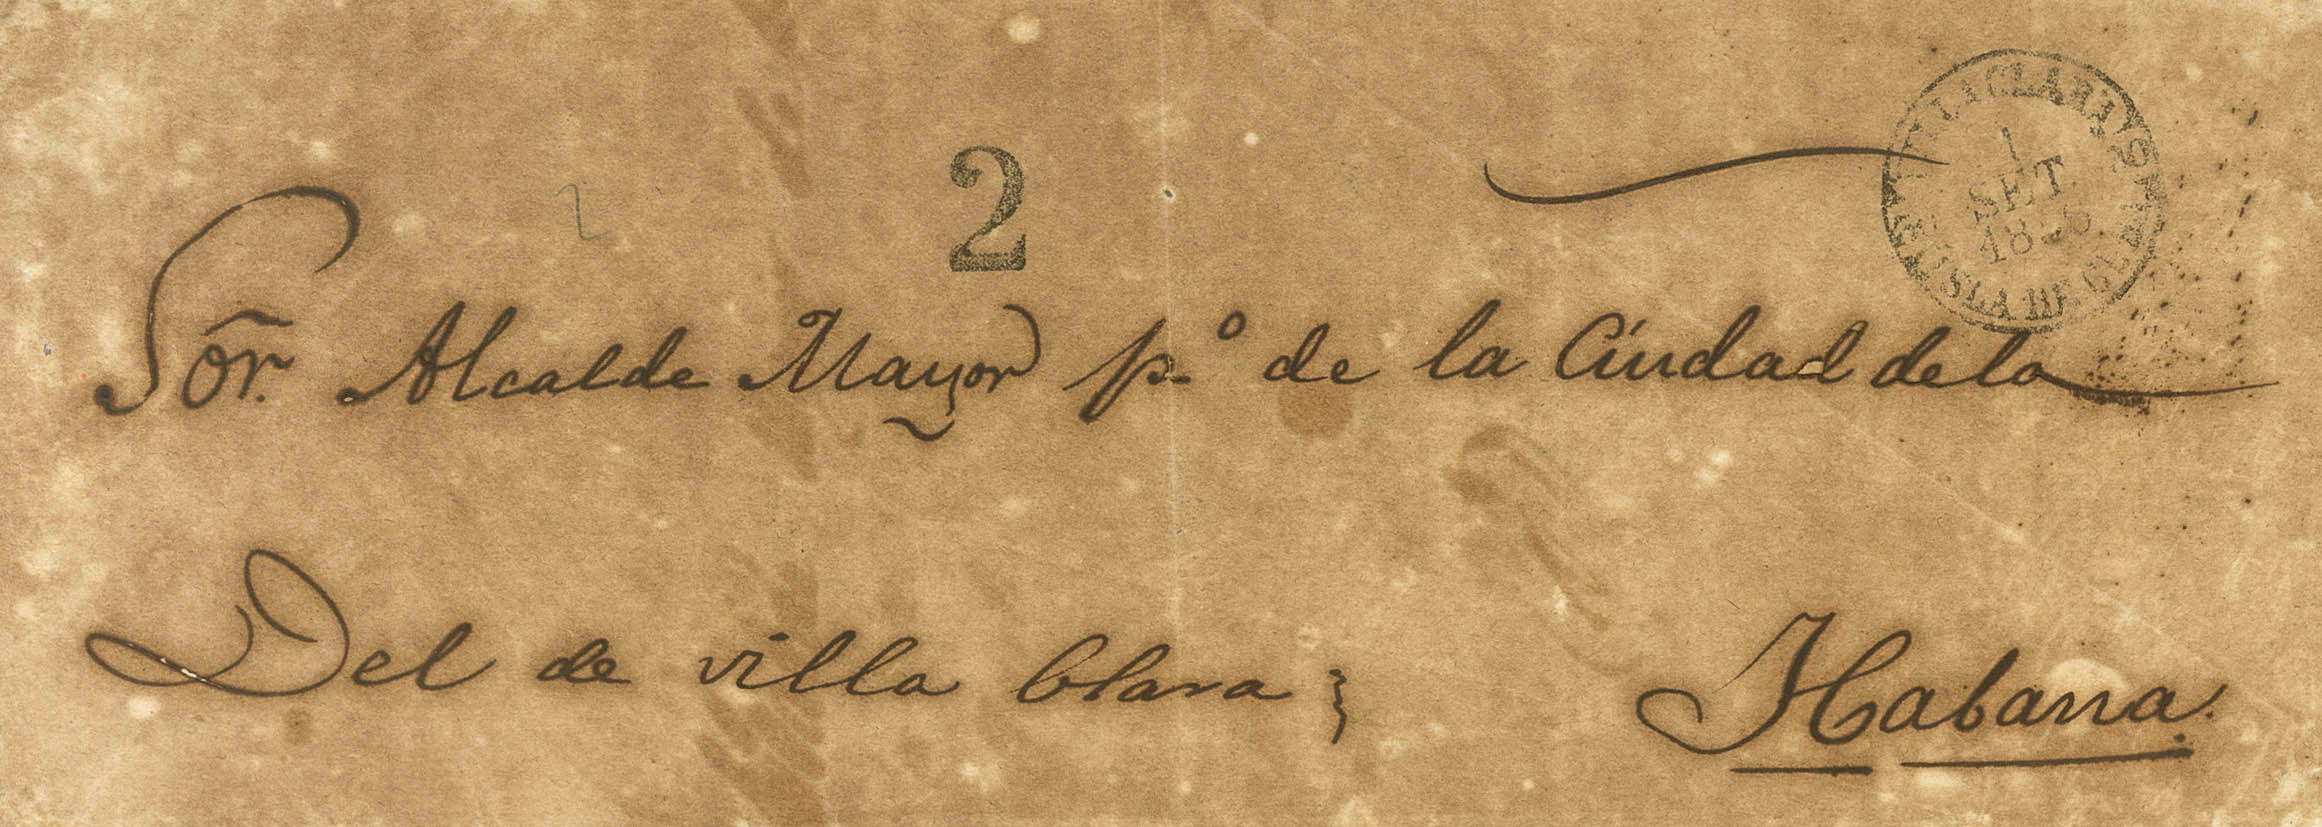 2
VILLACLARA
1
SET.
ISLA DE CUBA
Sõr. Alcalde Mayor p.º de la Ciudad de la
Del de villa Clara
Habana.